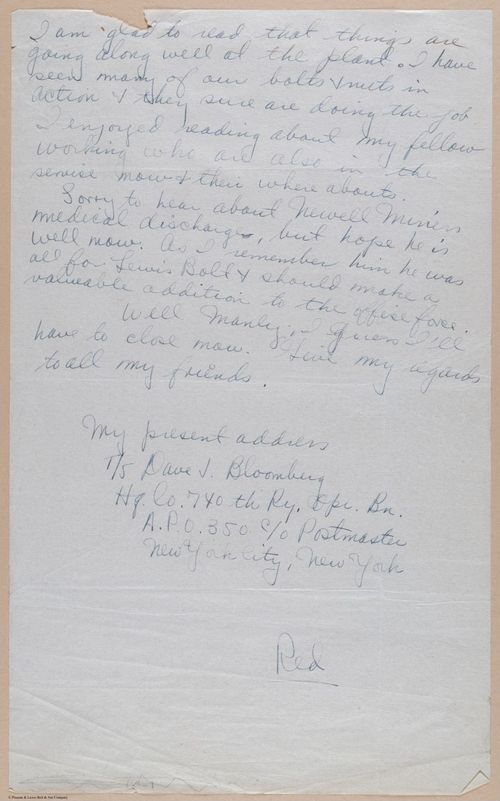 I am glad to read that things are
going along well at the plant. I have
seen many of our bolts & nuts in
action & they sure are doing the job.
I enjoyed reading about my fellow
working who are also in the
service now & their where abouts.
Sorry to hear about Newell Miner's
medical discharge, but hope he is
well now. As I remember him he was
all for Lewis Bolt & should make a
valuable addition to the office force.
Well Manly, I guess I'll
have to close now. Give my regards
to all my friends.
My present address
T/5 Dave J. Bloomberg
Hq. Co. 740 th Ry. Opr. Bn.
A.P.O. 350 c/o Postmaster
New York City, New York
Red
© Pioneer & Lewis Bolt & Nut Company